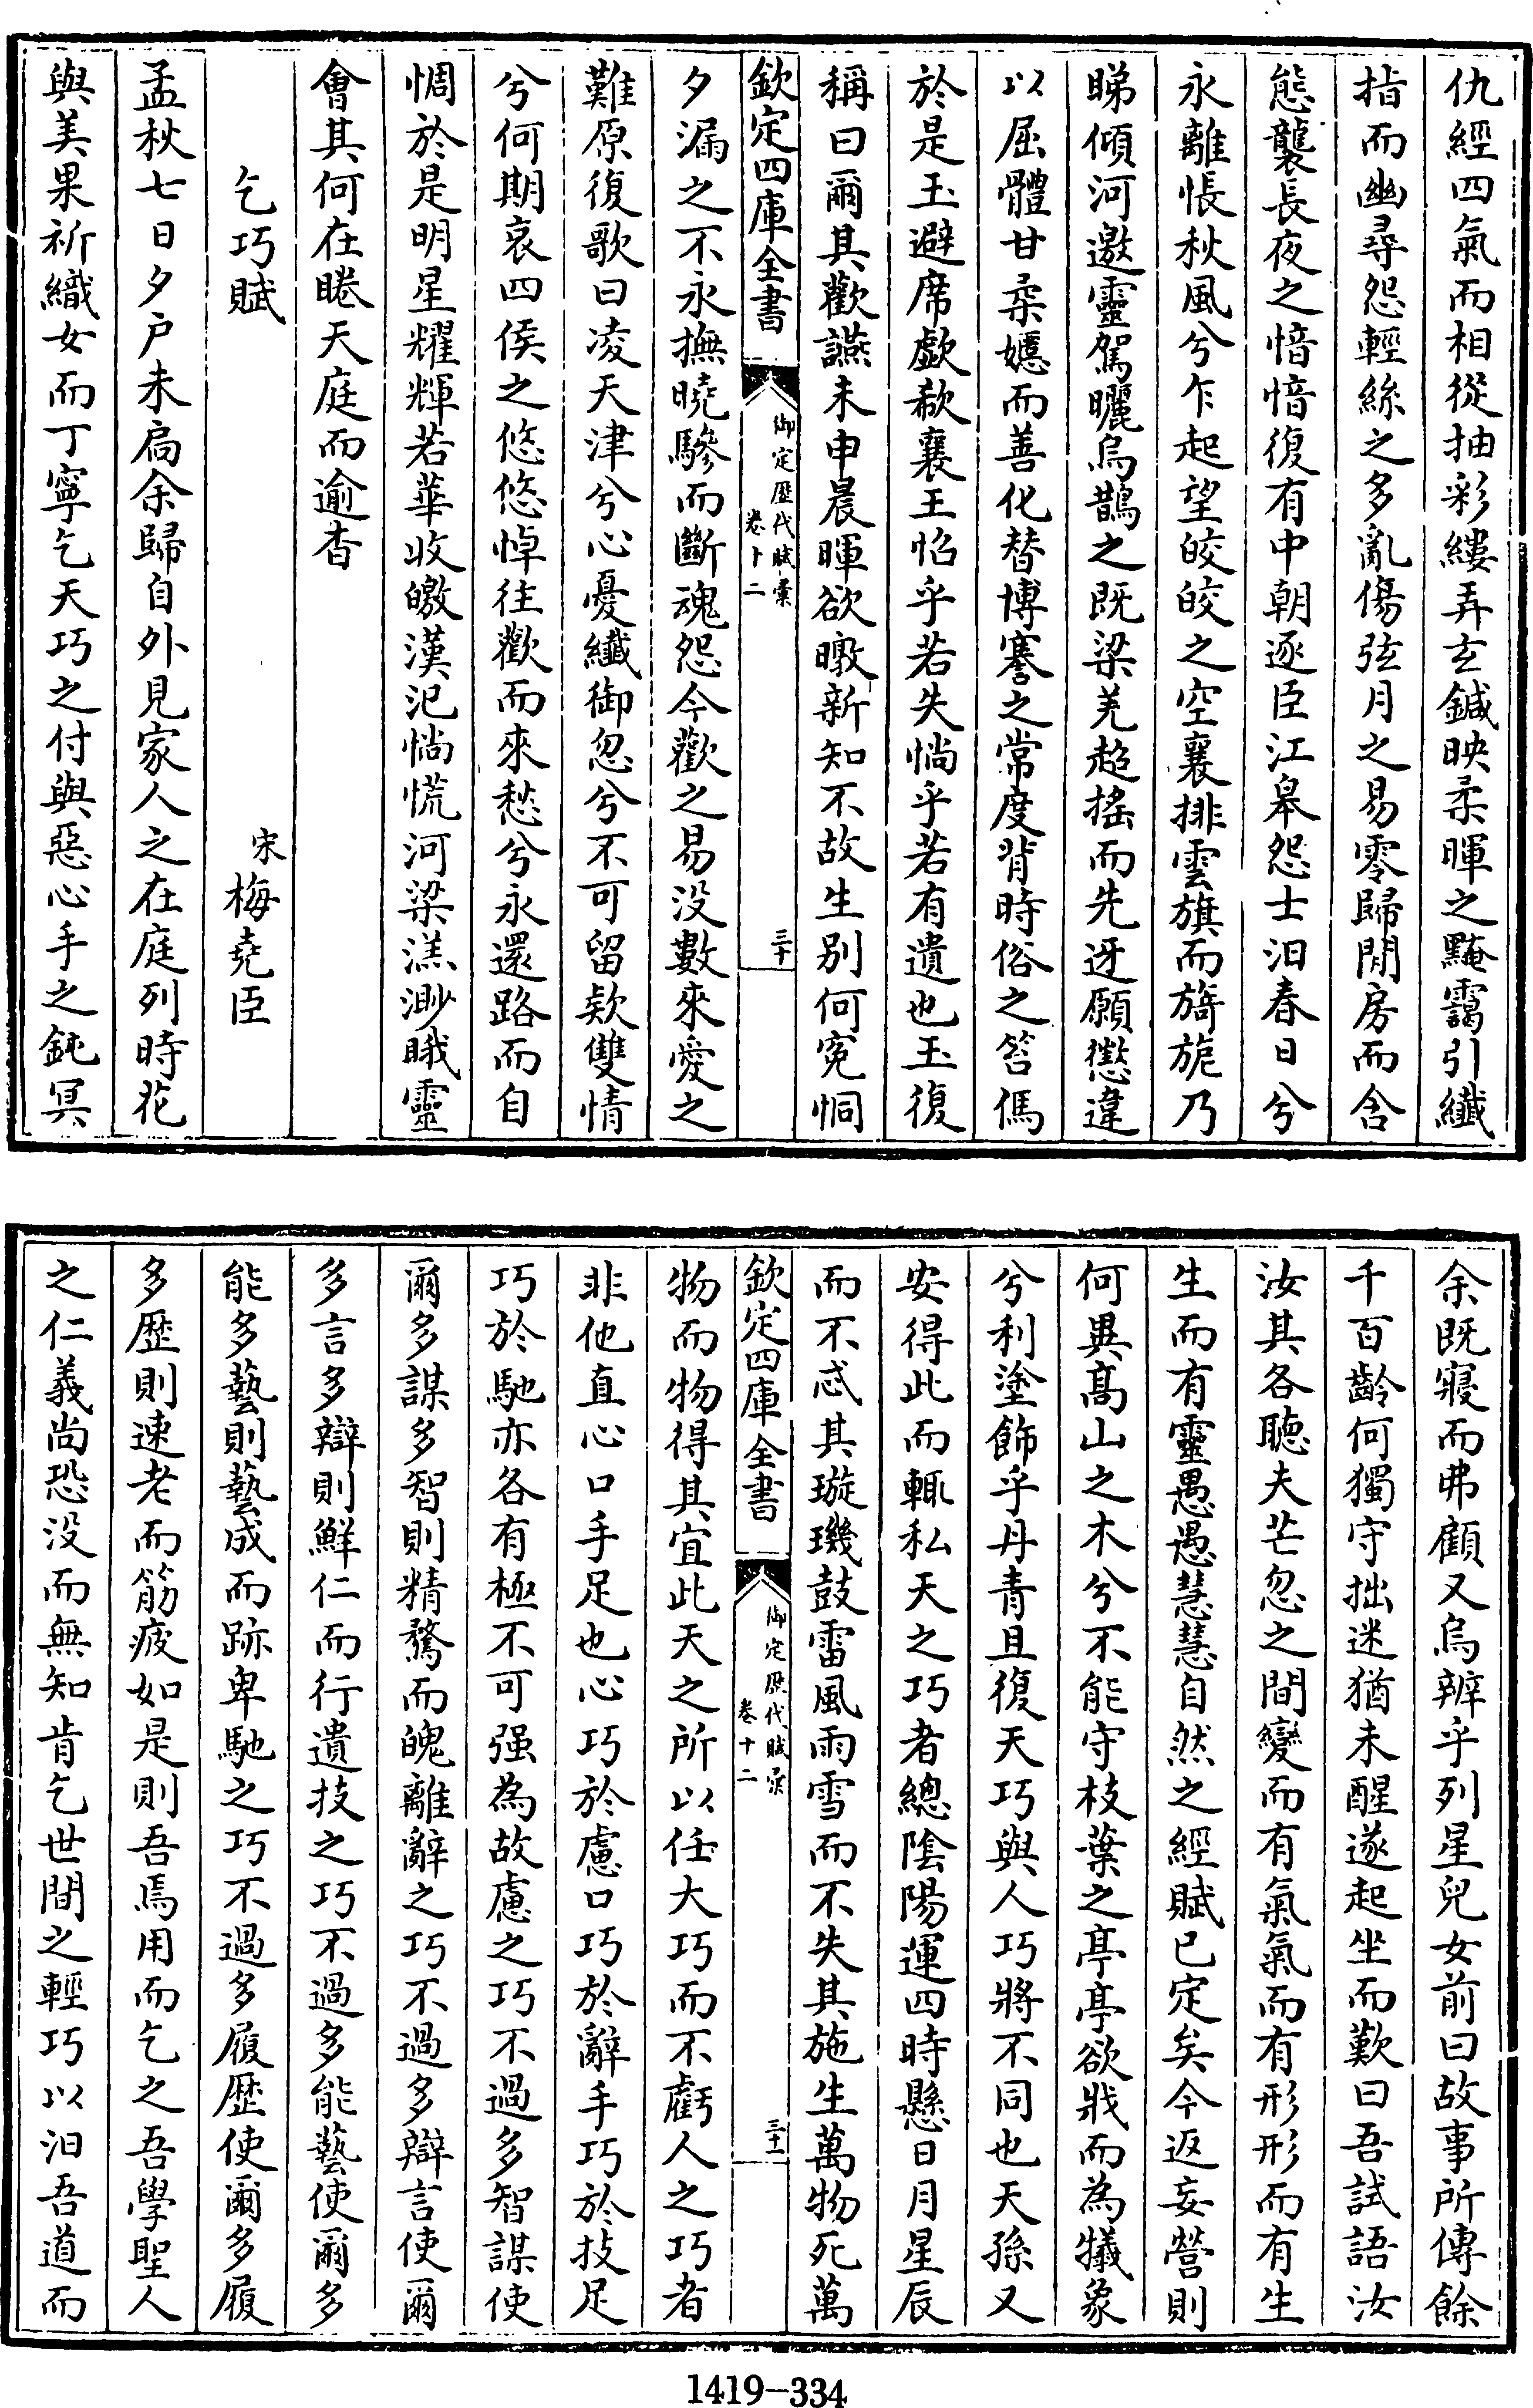 仇經四氣而相從抽彩縷弄玄鍼映柔暉之黤靄引纖
指而幽尋怨輕絲之多亂傷弦月之易零歸閒房而含
態襲長夜之愔愔復有中朝逐臣江皋怨士汨春日兮
永離悵秋風兮乍起望皎皎之空襄排雲旗而旖旎乃
睇傾河邀靈駕曬烏鵲之既梁羌趍搖而先迓願愆違
以屈體甘柔嬺而善化替博謇之常度背時俗之笞傌
於是玉避席歔欷襄王怊乎若失惝乎若有遺也玉復
稱曰爾其歡讌未申晨暉欲暾新知不故生別何寃恫
欽定四庫全書
御定歷代賦彙
卷十二
三十
夕漏之不永撫曉驂而斷魂怨今歡之易没數來愛之
難原復歌曰凌天津兮心憂纖御忽兮不可留欵雙情
兮何期哀四侯之悠悠悼往歡而來愁兮永還路而自
惆於是明星耀輝若華收皦漢汜惝慌河梁溔渺睋靈
會其何在睠天庭而逾杳
乞巧賦
宋梅堯臣
孟秋七日夕户未扃余歸自外見家人之在庭列時花
與美果祈織女而丁寧乞天巧之付與惡心手之鈍冥
余既寢而弗顧又烏辨乎列星兒女前曰故事所傳餘
千百齡何獨守拙迷猶未醒遂起坐而歎曰吾試語汝
汝其各聽夫芒忽之間變而有氣氣而有形形而有生
生而有靈愚愚慧慧自然之經賦已定矣今返妄營則
何異髙山之木兮不能守枝葉之亭亭欲戕而為犧象
兮利塗飾乎丹青且復天巧與人巧將不同也天孫又
安得此而輒私天之巧者總陰陽運四時懸日月星辰
而不忒其璇璣鼓雷風雨雪而不失其施生萬物死萬
欽定四庫全書
御定歷代賦彙
卷十二
三十一
物而物得其宜此天之所以任大巧而不虧人之巧者
非他直心口手足也心巧於慮口巧於辭手巧於技足
巧於馳亦各有極不可强為故慮之巧不過多智謀使
爾多謀多智則精騖而魄離辭之巧不過多辯言使爾
多言多辯則鮮仁而行遺技之巧不過多能藝使爾多
能多藝則藝成而跡卑馳之巧不過多履歷使爾多履
多歷則速老而筋疲如是則吾焉用而乞之吾學聖人
之仁義尚恐没而無知肯乞世間之輕巧以汨吾道而
1419-334